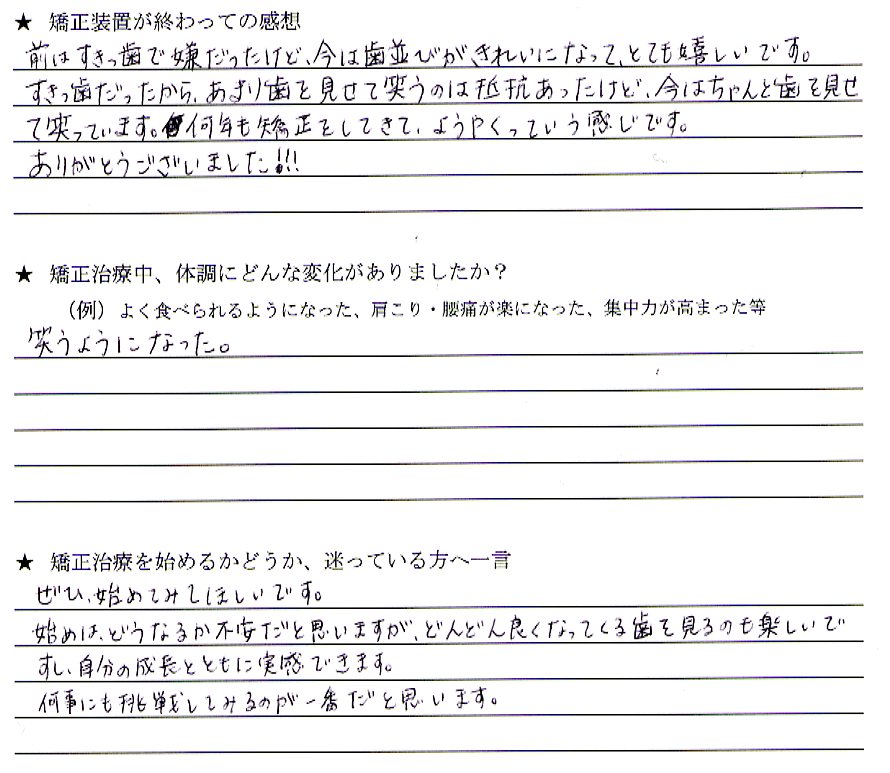 ★ 矯正装置が終わっての感想
前はすきっ歯で嫌だったけど、今は歯並びがきれいになって、とても嬉しいです。
すきっ歯だったから、あまり歯を見せて笑うのは抵抗あったけど、今はちゃんと歯を見せ
て笑っています。何年も矯正をしてきて、ようやくっていう感じです。
ありがとうございました!!!
★ 矯正治療中、体調にどんな変化がありましたか？
（例）よく食べられるようになった、肩こり・腰痛が楽になった、集中力が高まった等
笑うようになった。
★ 矯正治療を始めるかどうか、迷っている方へ一言
ぜひ、始めてみてほしいです。
始めは、どうなるか不安だと思いますが、どんどん良くなってくる歯を見るのも楽しいで
すし、自分の成長とともに実感できます。
何事にも挑戦してみるのが一番だと思います。